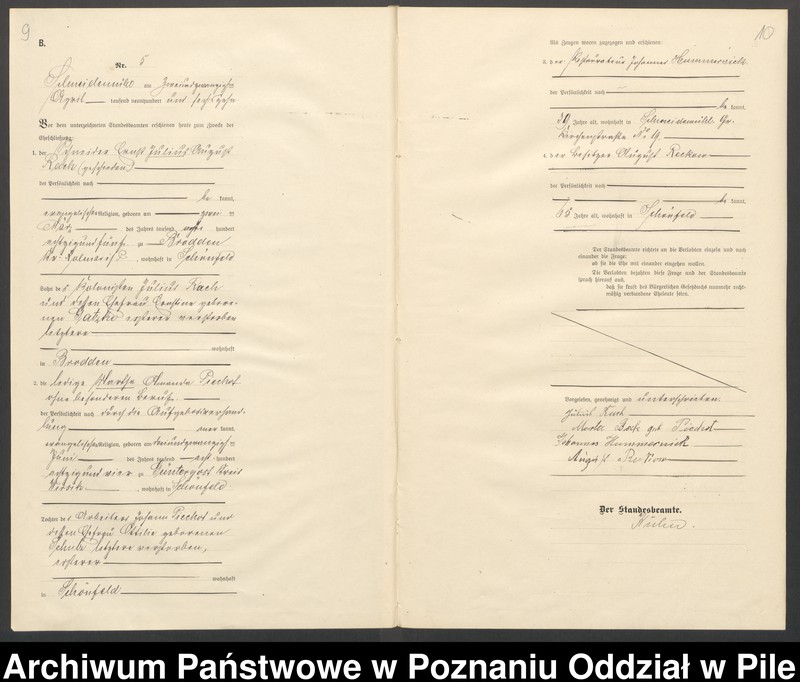 9
B.
Nr. 5
Schneidemühl am zweiundzwanzigsten
April tausend neunhundert und sechzehn
Vor dem unterzeichneten Standesbeamten erschienen heute zum Zwecke der
Eheschließung:
1. der Schneider Ernst Julius August
(geschieden)
der Persönlichkeit nach
be kannt,
evangelischer Religion, geboren am
März des Jahres tausend acht hundert
achtzigundfünf zu Brodden
, wohnhaft in Schönfeld
Sohn des Julius
und dessen Ehefrau Ernstine gebore-
nen ersterer verstorben
letztere
wohnhaft
in Brodden
2. die ledige Martha Amanda Piechot
ohne besonderen Beruf
der Persönlichkeit nach durch die Aufgebotsverhand-
lung aner kannt,
evangelischer Religion, geboren am
Juni des Jahres tausend acht hundert
achtzigundvier zu Güntergost Kreis
Wirsitz, wohnhaft in Schönfeld
Tochter des Arbeiters Johann Piechot und
dessen Ehefrau Ottilie geborenen
letztere verstorben,
ersterer
wohnhaft
in Schönfeld
10
Als Zeugen waren zugezogen und erschienen:
3. der Restaurateur Johannes Hammernick
der Persönlichkeit nach
be kannt,
Jahre alt, wohnhaft in Schneidemühl Gr.
Kirchenstraße No 19
4. der Besitzer August Reckow
der Persönlichkeit nach
be kannt,
Jahre alt, wohnhaft in Schönfeld
Der Standesbeamte richtete an die Verlobten einzeln und nach
einander die Frage:
ob sie die Ehe mit einander eingehen wollen.
Die Verlobten bejahten diese Frage und der Standesbeamte
sprach hierauf aus,
daß sie kraft des Bürgerlichen Gesetzbuchs nunmehr recht-
mäßig verbundene Eheleute seien.
Vorgelesen, genehmigt und unterschrieben.
Julius
Marta geb Piechot
Johannes Hammernick
August Reckow
Der Standesbeamte.
Archiwum Państwowe w Poznaniu Oddział w Pile